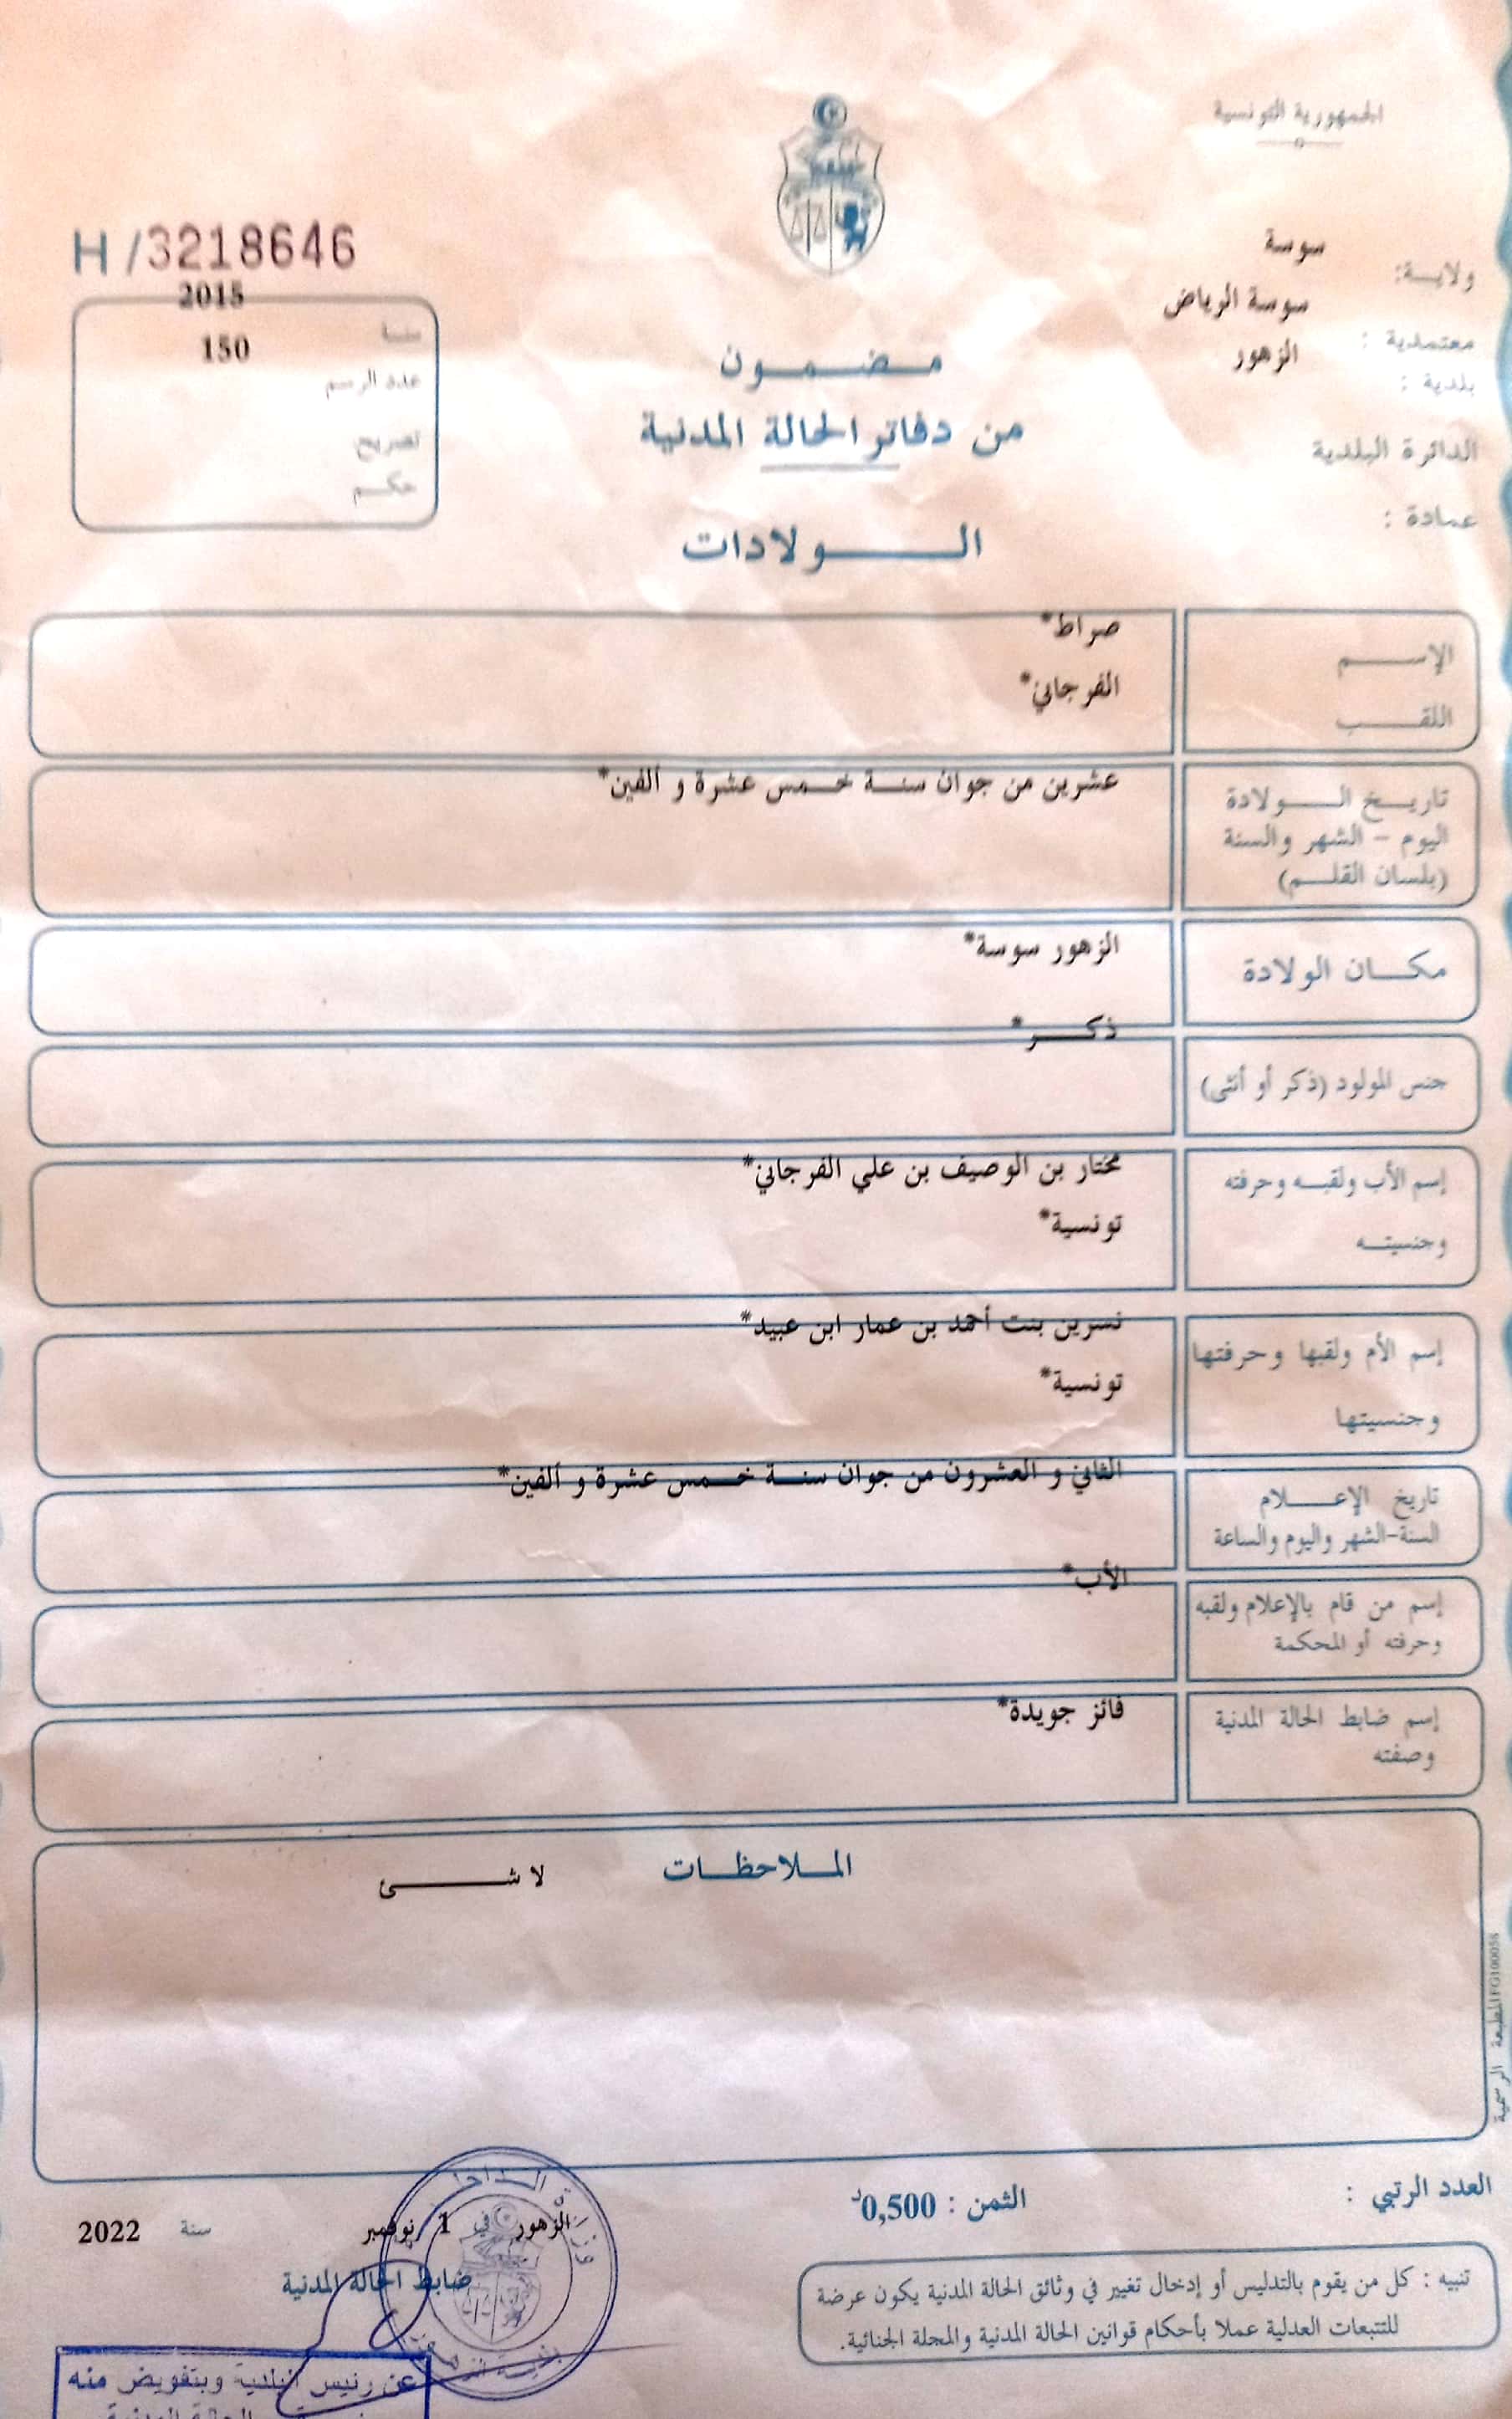 الجمهورية التونسية
H/3218646
ولاية: سوسة
معتمدية : سوسة الرياض
بلدية : الزهور
الدائرة البلدية
عمادة :
سنة 2015
عدد الرسم 150
تصريح
حكم
مضمون
من دفاتر الحالة المدنية
الولادات
الإسم صراط*
اللقب الفرجاني*
تاريخ الولادة
اليوم - الشهر والسنة
(بلسان القلم)
عشرين من جوان سنة خمس عشرة و ألفين*
مكان الولادة الزهور سوسة*
جنس المولود (ذكر أو أنثى) ذكر*
إسم الأب ولقبه وحرفته
وجنسيته
مختار بن الوصيف بن علي الفرجاني*
تونسية*
إسم الأم ولقبها وحرفتها
وجنسيتها
نسرين بنت أحمد بن عمار ابن عبيد*
تونسية*
تاريخ الإعلام
السنة-الشهر واليوم والساعة
الثاني و العشرون من جوان سنة خمس عشرة و ألفين*
إسم من قام بالإعلام ولقبه
وحرفته أو المحكمة
الأب*
إسم ضابط الحالة المدنية
وصفته
فائز جويدة*
الملاحظات لا شئ
المطبعة الرسمية
العدد الرتبي :
الثمن : 0,500د
الزهور في 1 نوفمبر سنة 2022
ضابط الحالة المدنية
تنبيه : كل من يقوم بالتدليس أو إدخال تغيير في وثائق الحالة المدنية يكون عرضة
للتتبعات العدلية عملا بأحكام قوانين الحالة المدنية والمجلة الجنائية.
عن رئيس البلدية وبتفويض منه